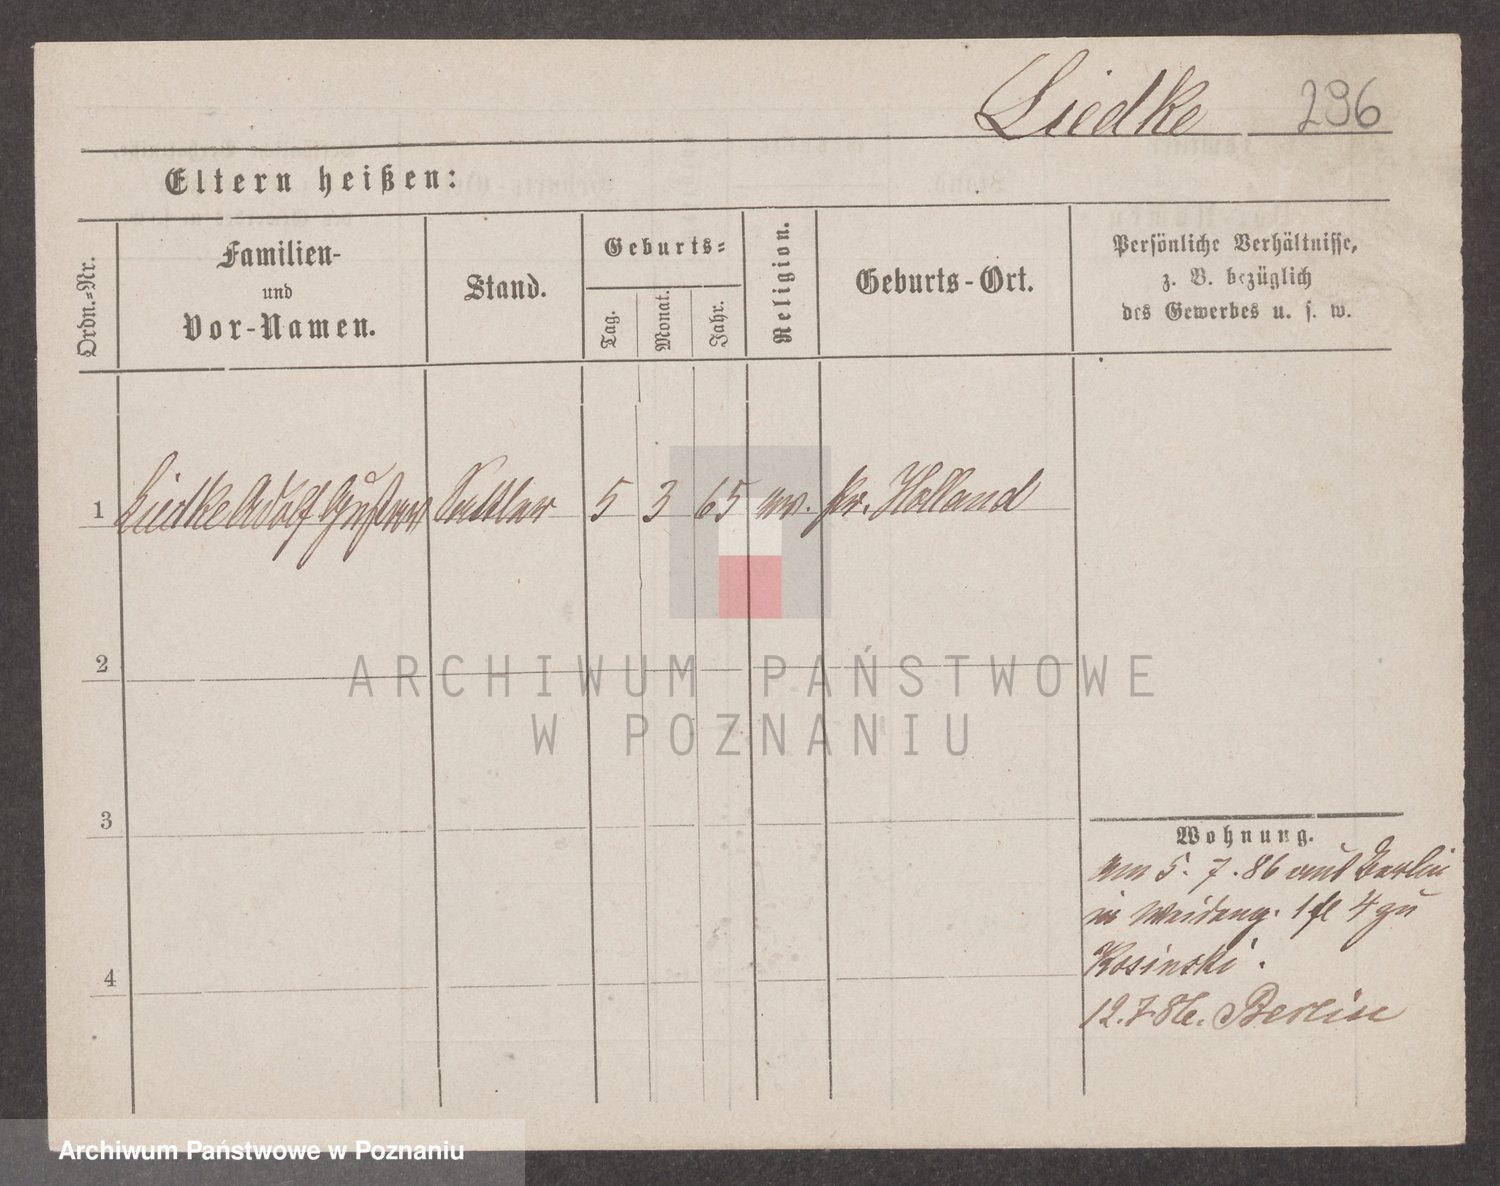 Liedke 296
Eltern heißen:
Ordn.=Nr.
Familien-
und
Vor-Namen.
Stand.
Geburts=
Tag.
Monat.
Jahr.
Religion.
Geburts-Ort.
Persönliche Verhältnisse,
z. B. bezüglich
des Gewerbes u. s. w.
1 Liedke Adolf Gustav Sattler 5 3 65 ev. pr. Holland
2
3
4
Wohnung.
am 5. 7. 86 aus Berlin
in 4 zu
Kosinski.
12.7.86. Berlin
ARCHIWUM PAŃSTWOWE
W POZNANIU
Archiwum Państwowe w Poznaniu